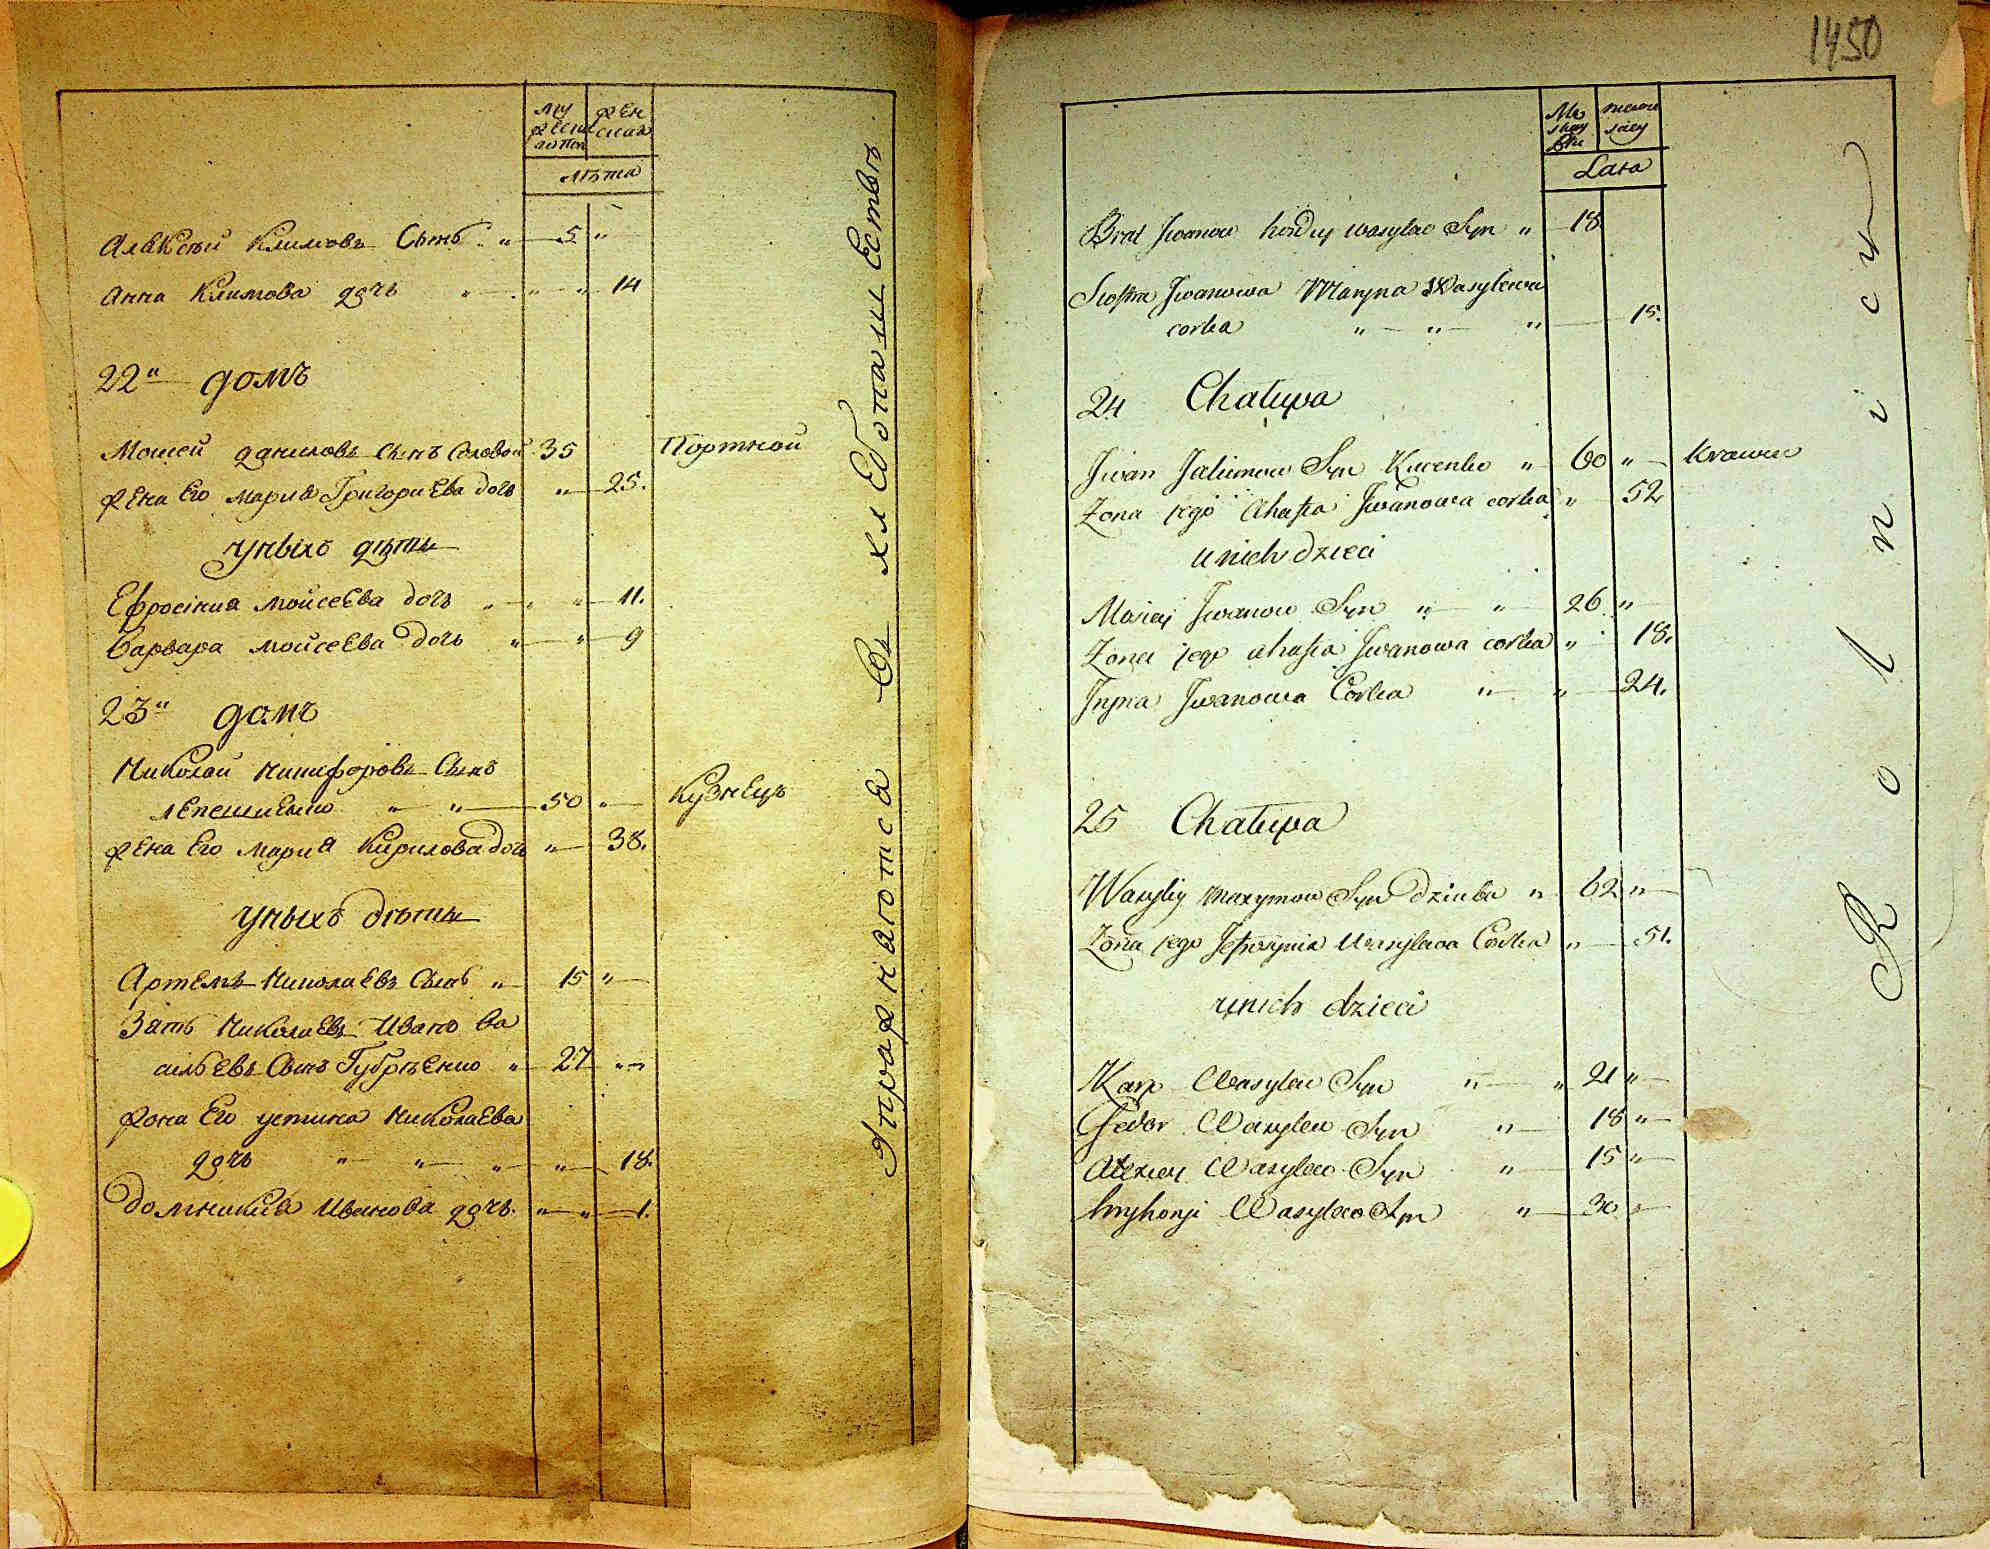 муреска полъ
женская
лѣта
Алексѣй Климовъ Сынъ " 5 "
Анна Климова дочь " " " 14
22" домъ
Моисей даниловъ сынъ Соловей 35 Портной
жена Его Мария Григориева дочь " 25.
унихъ дѣти
Ефросиния моисеева дочь " " 11.
Варвара моисеева дочь " " 9
23" домъ
Николай Никифоровъ Сынъ
лепешиенко " " 50 " Кузнецъ
жена Его мария Кирилова дочь " 38.
унихъ дѣти
Артемъ Николаевъ Сынъ " 15 "
Зять Николаевъ Иванъ Ва
сильевъ Сынъ " 27 "
жона Его устина Николаева
дочь " " " " 18.
домникия Иванова дочь. " " 1.
Упражнаютса Въ хлебопашествѣ
1450
Lata
Brat Iwanow hordiy wasylew Syn " 18
Siostra Iwanowa Maryna Wasylewa
corka " " " 15.
24 Chatupa
Iwan Jakimow Syn Kucenko " 60 " Krawiec
Zona jego Ahafia Iwanowa corka " 52
u nich dzieci
Mosiey Iwanow Syn " " 26 "
Zona jego ahafia Iwanowa corka " 18.
Iryna Iwanowa Corka " " 24.
25 Chatupa
Wasyliy Maxymow Syn Dziuba " 62 "
Zona jego Jefrosynia Wasylewa Corka " 51.
u nich dzieci
Karp Wasylew Syn " " 21 "
Fedor Wasylew Syn " 18 "
Alexiey Wasylew Syn " 15 "
Wasylew Syn " 30 "
Rolnicy